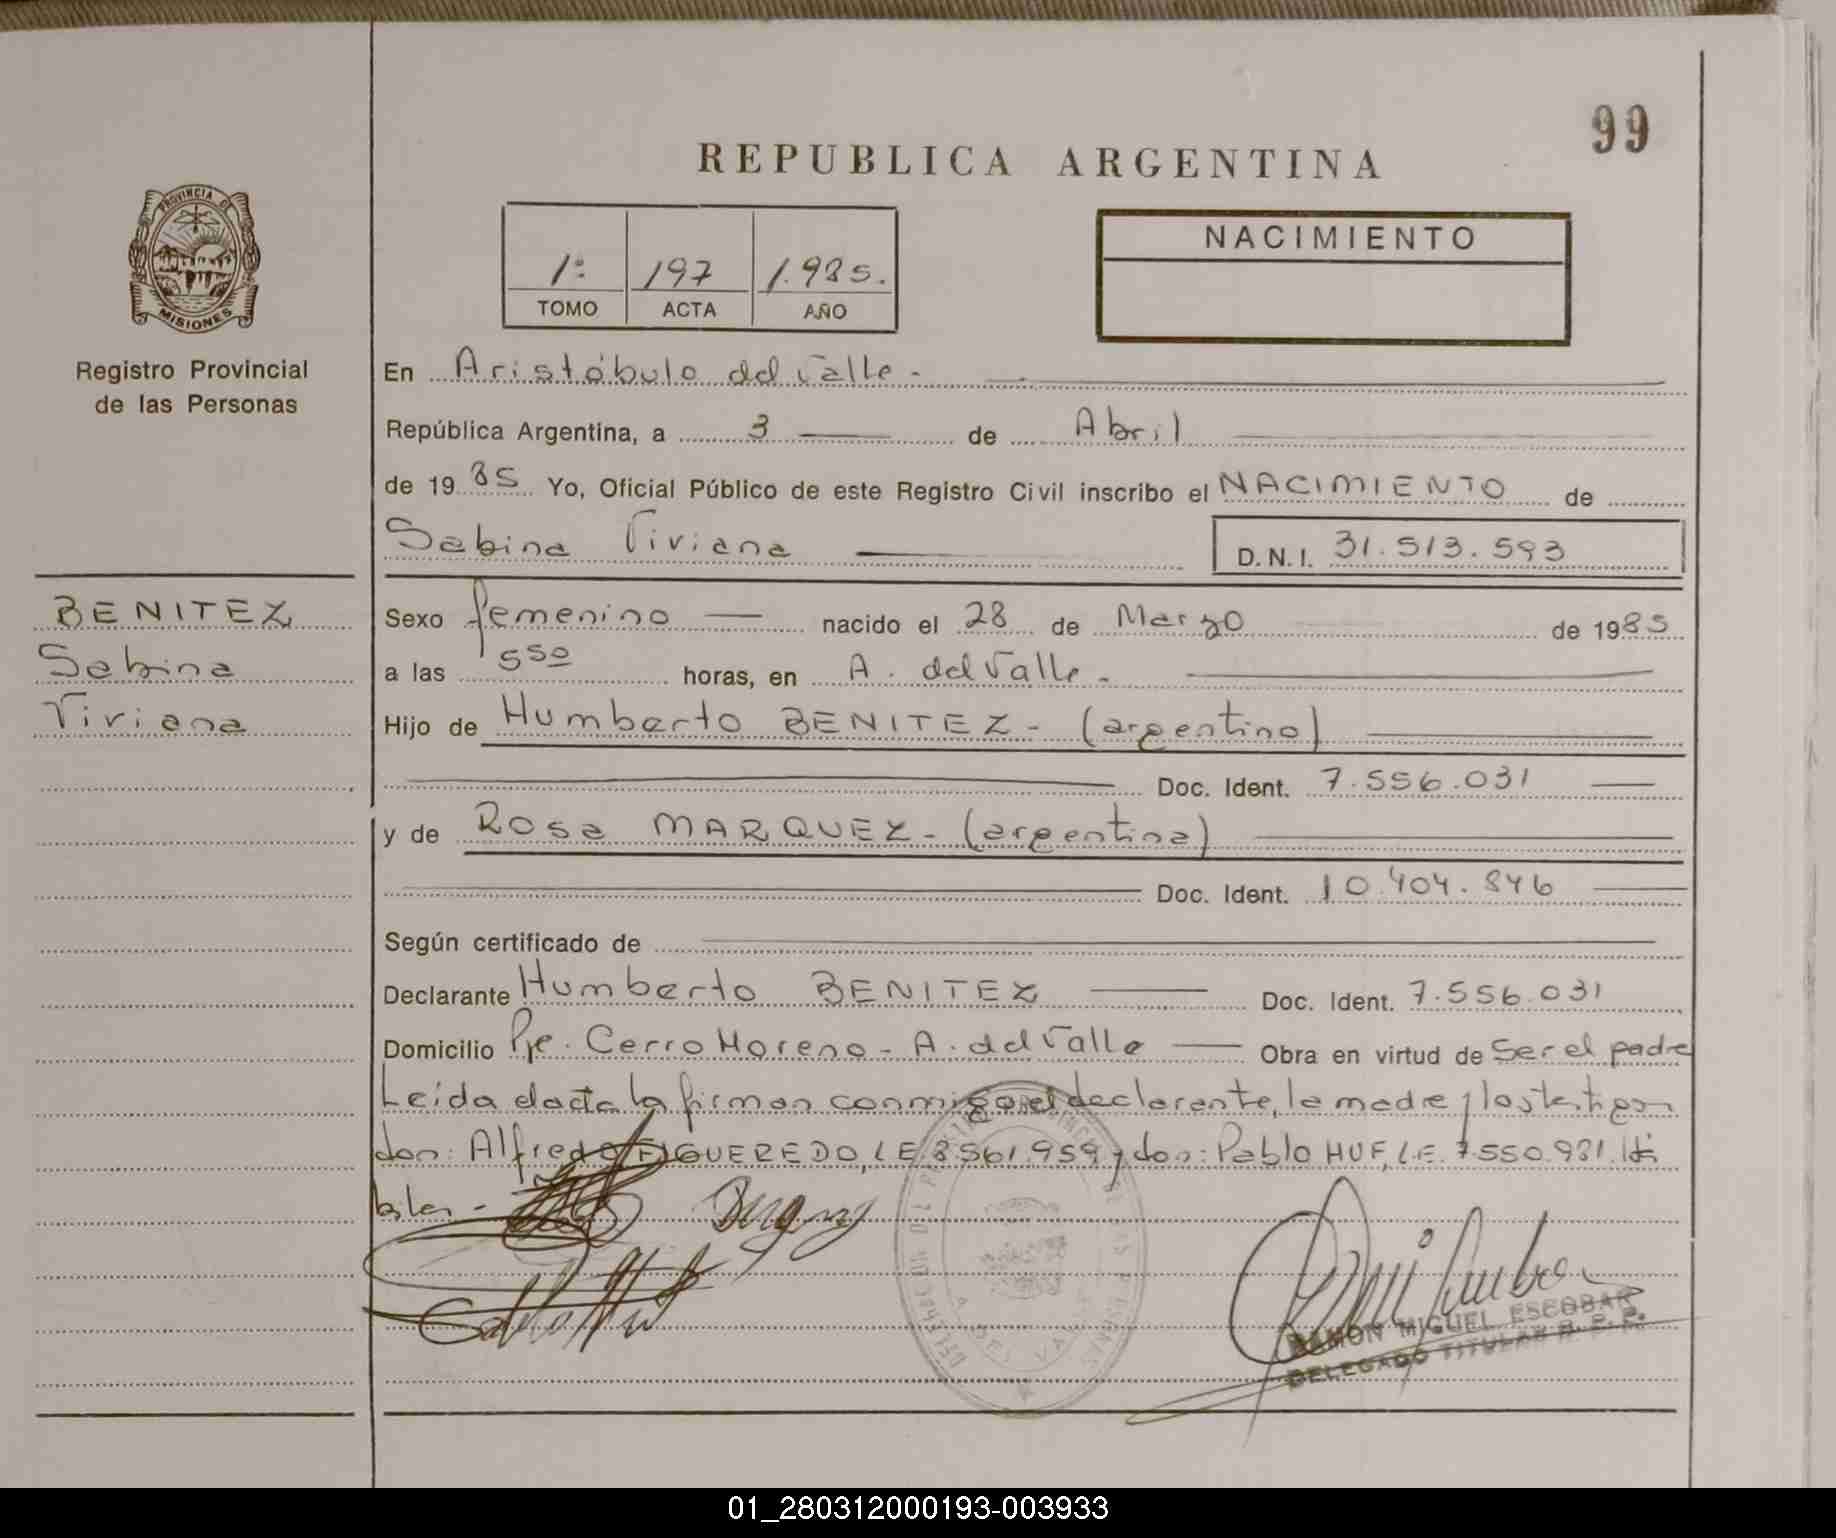 99
REPUBLICA ARGENTINA
PROVINCIA DE
MISIONES
Registro Provincial
de las Personas
1º 197 1.985.
TOMO ACTA AÑO
NACIMIENTO
En Aristóbulo del Valle -
República Argentina, a 3 de Abril
de 19 85 Yo, Oficial Público de este Registro Civil inscribo el NACIMIENTO de
Sabina Viviana D.N.I. 31.513.593
BENITEZ
Sabina
Viviana
Sexo femenino nacido el 28 de Marzo de 1985
a las 550 horas, en A. del Valle -
Hijo de Humberto BENITEZ - (argentino)
Doc. Ident. 7.556.031
y de Rosa MARQUEZ - (argentina)
Doc. Ident. 10.404.846
Según certificado de
Declarante Humberto BENITEZ Doc. Ident. 7.556.031
Domicilio Pje. Cerro Moreno - A. del Valle Obra en virtud de Ser el padre
Leída el acta la firman conmigo el declarante, la madre y los testigos
don: Alfredo FIGUEREDO, L.E. 3.561.959 y don: Pablo HUF, L.E. 7.550.931. Há
biles -
RAMON MIGUEL ESCOBAR
DELEGADO TITULAR R. P. P.
01_280312000193-003933